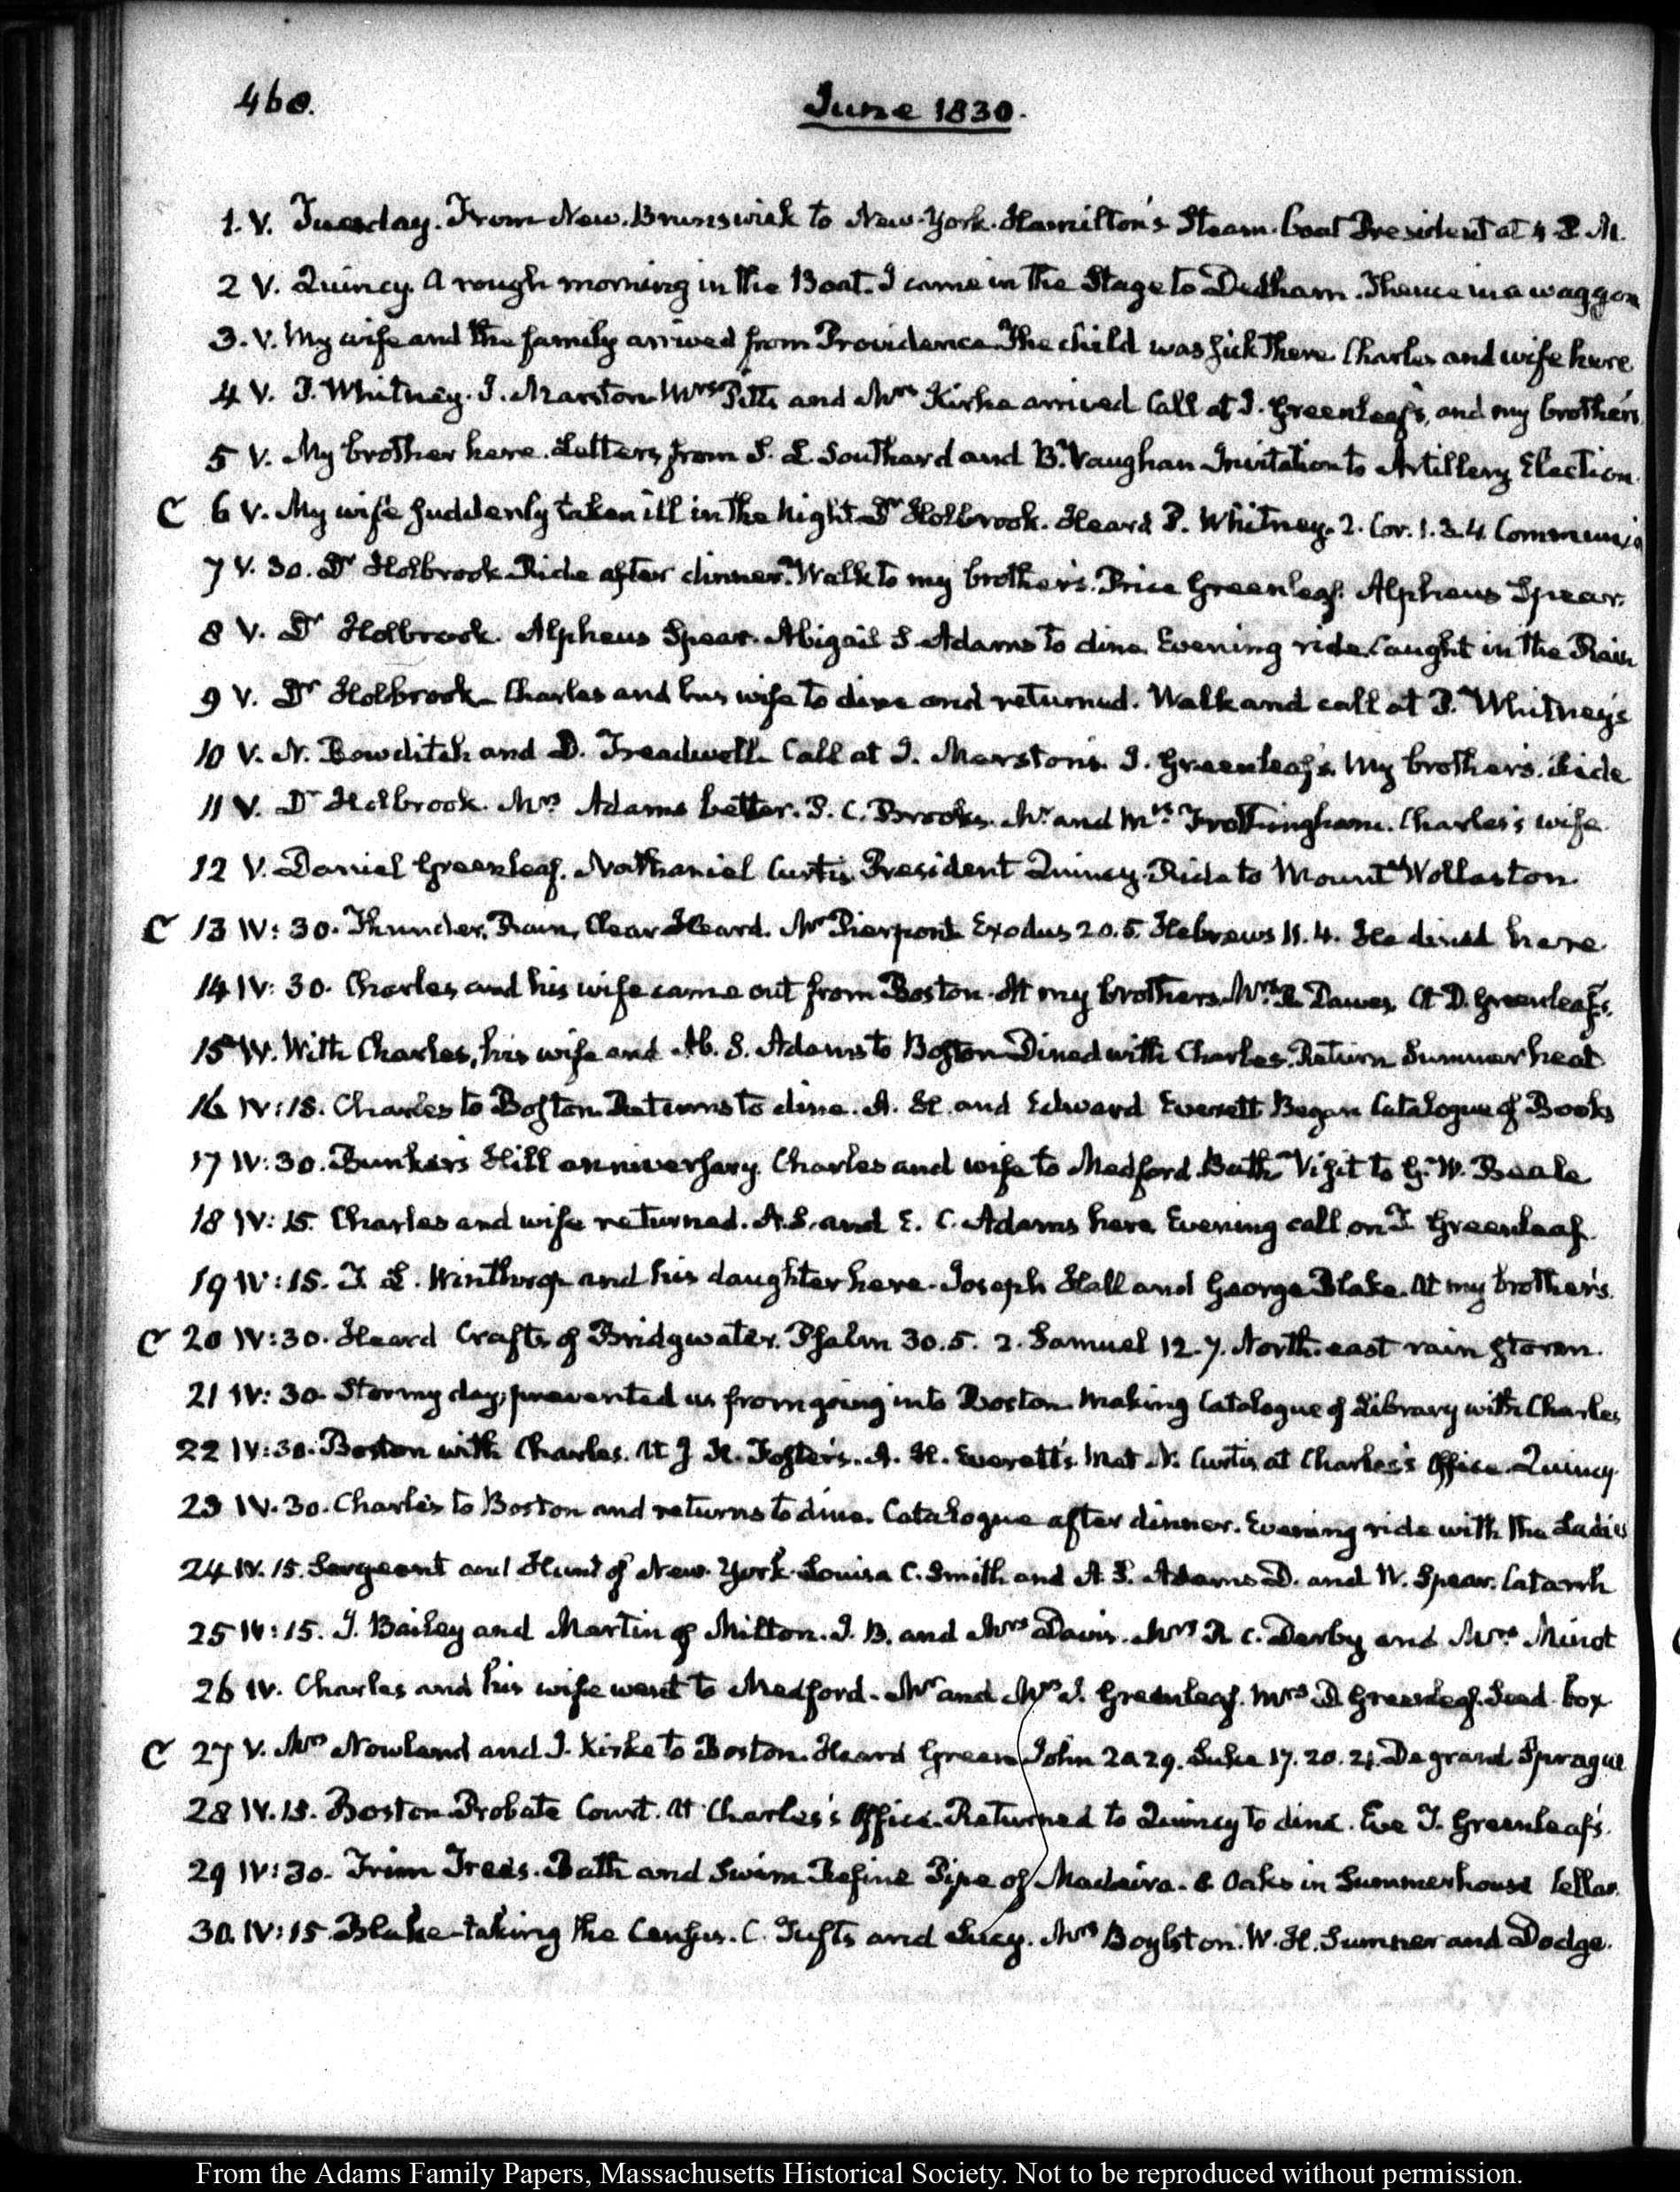 460.
June 1830.
1. V. Tuesday. From New-Brunswick to New-York. Hamilton's. Steam-boat President at 4 P. M.
2 V. Quincy. A rough morning in the Boat. I came in the Stage to Dedham. Thence in a waggon
3. V. My wife and the family arrived from Providence. The child was sick there. Charles and wife here
4 V. P. Whitney. J. Marston. Mrs Pitts and Mrs Kirke arrived. Call at T. Greenleaf's, and my brother's
5 V. My brother here. Letters from S. L. Southard and B. Vaughan. Invitation to Artillery Election.
C 6 V. My wife suddenly taken ill in the Night. Dr Holbrook. Heard P. Whitney. 2. Cor. 1. 3. 4. Communi
7 V. 30. Dr Holbrook. Ride after dinner. Walk to my brother's. Price Greenleaf. Alpheus Spear.
8 V. Dr Holbrook. Alpheus Spear. Abigail S. Adams to dine. Evening ride. Caught in the Rain
9 V. Dr Holbrook. Charles and his wife to dine and returned. Walk and call at P. Whitney's
10 V. N. Bowditch and D. Treadwell. Call at J. Marston's. T. Greenleaf's. My brother's. Ride
11 V. Dr Holbrook. Mrs Adams better. P. C. Brooks. Mr and Mrs Frothingham. Charles's wife.
12 V. Daniel Greenleaf. Nathaniel Curtis. President Quincy. Ride to Mount Wollaston.
C 13 IV: 30. Thunder, Rain, Clear. Heard. Mr Pierpont. Exodus 20. 5. Hebrews 11. 4. He dined here
14 IV: 30. Charles and his wife came out from Boston. At my brothers. Mrs R. Dawes. At D. Greenleaf's.
15 IV. With Charles, his wife and Ab. S. Adams to Boston. Dined with Charles. Return. Summer heat
16 IV: 15. Charles to Boston. Returns to dine. A. H. and Edward Everett. Began Catalogue of Books
17 IV: 30. Bunker's Hill anniversary. Charles and wife to Medford. Bath. Visit to G. W. Beale
18 IV: 15. Charles and wife returned. A. S. and E. C. Adams here. Evening call on T. Greenleaf.
19 IV: 15. T. L. Winthrop and his daughter here. Joseph Hall and George Blake. At my brother's.
C 20 IV: 30. Heard Crafts of Bridgwater. Psalm 30. 5. 2. Samuel 12. 7. North-east rain storm.
21 IV: 30. Stormy day, prevented us from going into Boston. Making Catalogue of Library with Charles
22 IV: 30. Boston with Charles. At J H. Foster's. A. H. Everett's. Met N. Curtis at Charles's Office. Quincy.
23 IV. 30. Charles to Boston and returns to dine. Catalogue after dinner. Evening ride with the Ladies
24 IV. 15. Sergeant and Hunt of New-York. Louisa C. Smith and A. S. Adams. D. and W. Spear. Catarrh
25 IV: 15. J. Bailey and Martin of Milton. J. B. and Mrs Davis. Mrs R. C. Derby and Mrs Minot
26 IV. Charles and his wife went to Medford. Mr and Mrs T. Greenleaf. Mrs D Greenleaf. Seed-box
C 27 V. Mrs Nowland and J. Kirke to Boston. Heard Green John 20. 29. Luke 17. 20. 21. Degrand. Sprague
28 IV. 15. Boston. Probate Court. At Charles's Office. Returned to Quincy to dine. Eve T. Greenleaf's.
29 IV: 30. Trim Trees. Bath and Swim. Refine Pipe of Madeira. Oaks in Summerhouse Cellar
30. IV: 15. Blake taking the Census. C. Tufts and Lucy. Mrs Boylston. W. H. Sumner and Dodge.
From the Adams Family Papers, Massachusetts Historical Society. Not to be reproduced without permission.